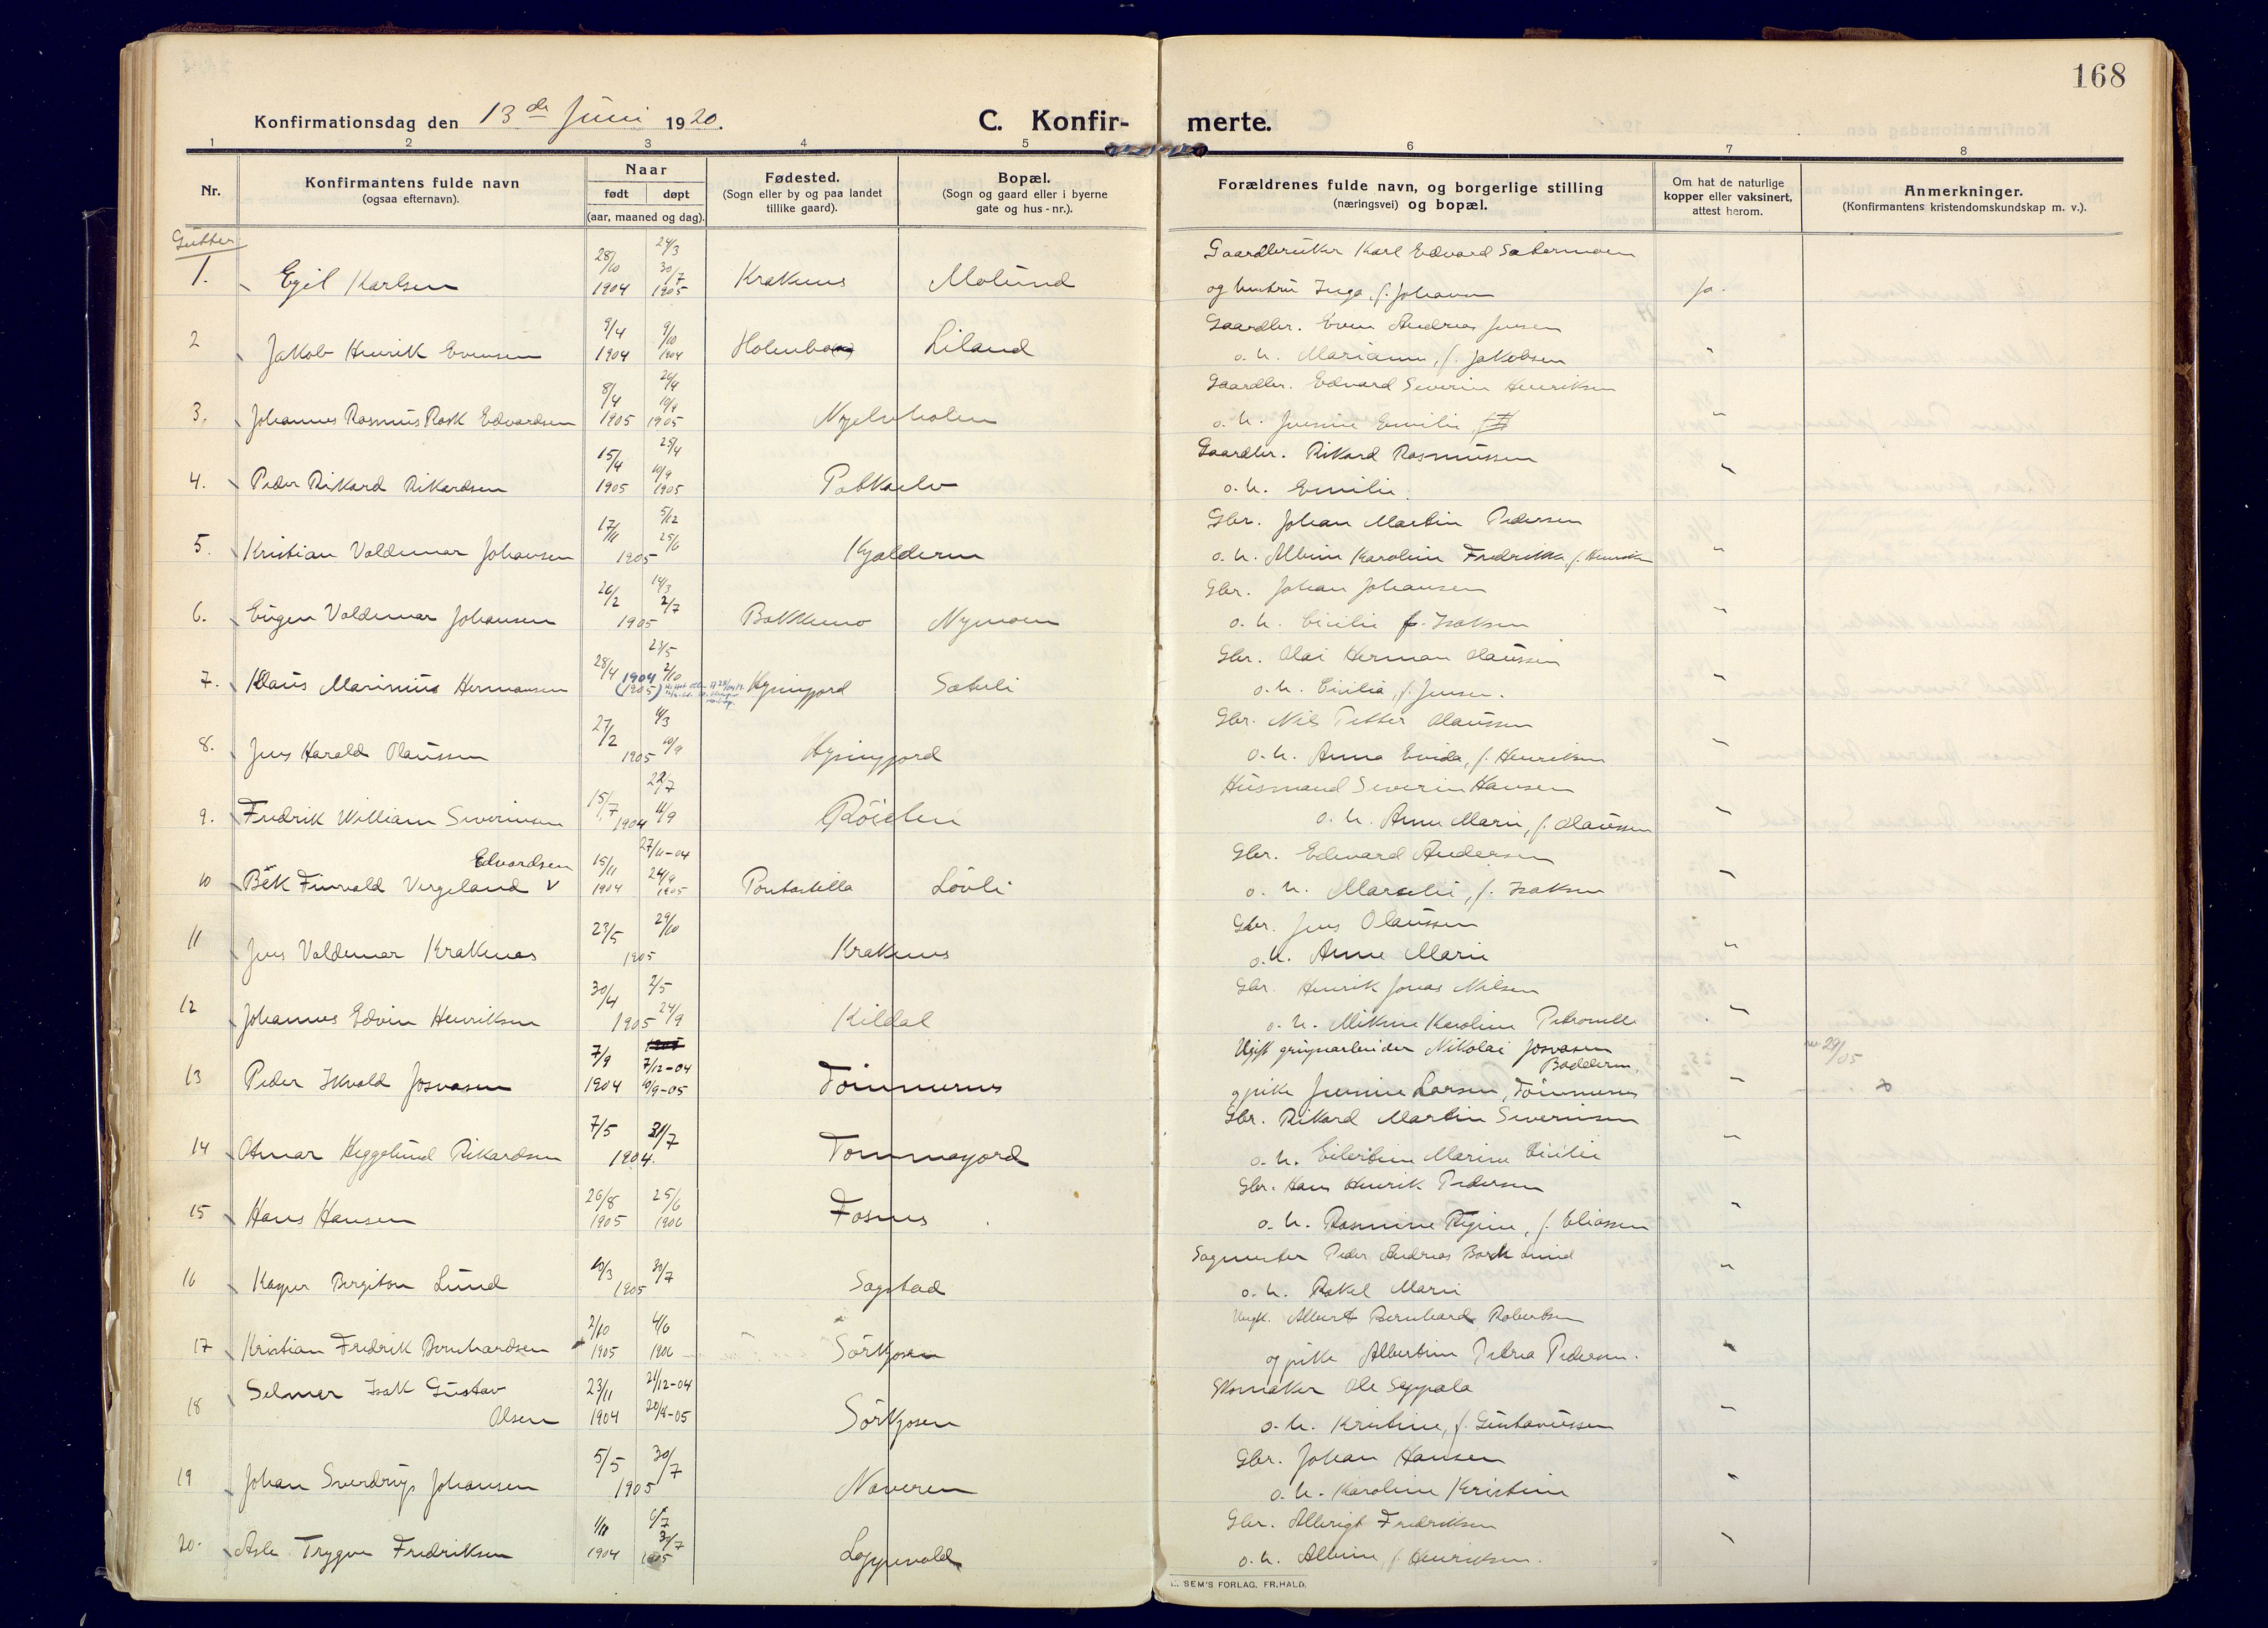 168
Konfirmationsdag den 13de Juni 1920.
C. Konfir- merte.
1 2 3 4 5 6 7 8
Nr.
Konfirmantens fulde navn
(ogsaa efternavn).
Naar
født døpt
(aar, maaned og dag).
Fødested.
(Sogn eller by og paa landet
tillike gaard).
Bopæl.
(Sogn og gaard eller i byerne
gate og hus-nr.).
Forældrenes fulde navn, og borgerlige stilling
(næringsvei) og bopæl.
Om hat de naturlige
kopper eller vaksinert,
attest herom.
Anmerkninger.
(Konfirmantens kristendomskundskap m. v.).
Gutter
1. Egil Karlsen 28/10 1904 24/3 30/7 1905 Kraknes Molund
Gaardbruker Karl Edvard
og hustru Inga, f. Johansen ja.
2 Jakob Henrik Evensen 9/4 1904 9/10 1904 Liland
Gaardbr. Even Andreas Jensen
o. h. Marianne, f. Jakobsen "
3. Johannes Rasmus Rosk Edvardsen 8/4 1905 26/4 10/9 1905 Nyelvholm
Gaardbr. Edvard Severin Henriksen
o. h. Jensine Emilie "
4. Peder Rikard Rikardsen 15/4 1905 25/4 10/9 1905
Gaardbr. Rikard Rasmussen
o. h. Emilie. "
5. Kristian Valdemar Johansen 17/11 5/12 25/6 1905 Kjælderen
Gbr. Johan Martin Pedersen
o. h. Albine Karoline Fredrikka, f. "
6. Eugen Valdemar Johansen 26/2 14/3 2/7 1905 Bakkemo Nymoen
Gbr. Johan Johansen
o. h. Cicilie f. Isaksen "
7. Klaus Marinius Hermansen 28/4 1904 23/5 2/10 (1905) Sæterli
Gbr. Olai Herman Olaussen
o. h. Cicilia, f. Jensen. "
8. Jens Harald Olaussen 27/2 4/3 10/9 1905
Gbr. Nils Petter Olaussen
o. h. Anna Evida, f. Henriksen "
9. Fredrik William Severinsen 15/7 22/7 11/9 1904 Röielen
Husmand Severin Hansen
o. h. Anne Marie, f. Olaussen "
Edvardsen
10 Bëk Finvald Vergeland v 15/11 1904 27/11-04 24/9 1905 Løvli
Gbr. Edvard Andersen
o. h. Marselie, f. Isaksen "
11 Jens Valdemar Kraknes 23/5 29/10 1905 Kraknes
Gbr. Jens Olaussen
o. h. Anne Marie "
12 Johannes Edvin Henriksen 30/4 2/5 24/9 1905 Kildal
Gbr. Henrik Jonas Nilsen
o. h. Mikine Karoline Petronelle "
13 Peder Ikvald Josvasen 7/9 1904 7/12-04 10/9-05 Tömmernes
Ugift grupearbeider Nikolai Josvasen
Badderen. 29/05
og pike Jensine Larsen, Tömmernes "
14 Otmar Heggelund Rikardsen 7/5 31/7 1904.
Gbr. Rikard Martin Severinsen
o. h. Eilertine Marine Cicilie "
15 Hans Hansen 26/8 1905 25/6 1906 Fosnes
Gbr. Hans Henrik Pedersen
o. h. Rasmine Regine, f. Eliassen "
16 Kasper Bergiton Lund 10/3 30/7 1905 Sagstad
Sagmester Peder Andreas Bork Lund
o. h. Rakel Marie "
17 Kristian Fredrik Bernhardsen 2/10 1905 4/6 1906 Sörkjosen
Ungk. Albert Bernhard Robertsen
og pike Albertine Petra Pedersen. "
18 Selmer Isak Gustav
Olsen 23/11 1904 21/12-04 20/8-05 Sörkjosen
Skomaker Ole Seppala
o. h. Kristine, f. Gustavussen "
19 Johan Sverdrup Johansen 5/5 30/7 1905 Naveren
Gbr. Johan Hansen
o. h. Karoline Kristine "
20. Asle Trygve Fredriksen 1/11 1904 6/7 30/7 1905 Loppevold
Gbr. Albrigt Fredriksen
o. h. Albine, f. Henriksen. "
SEM'S FORLAG, FR.HALD.